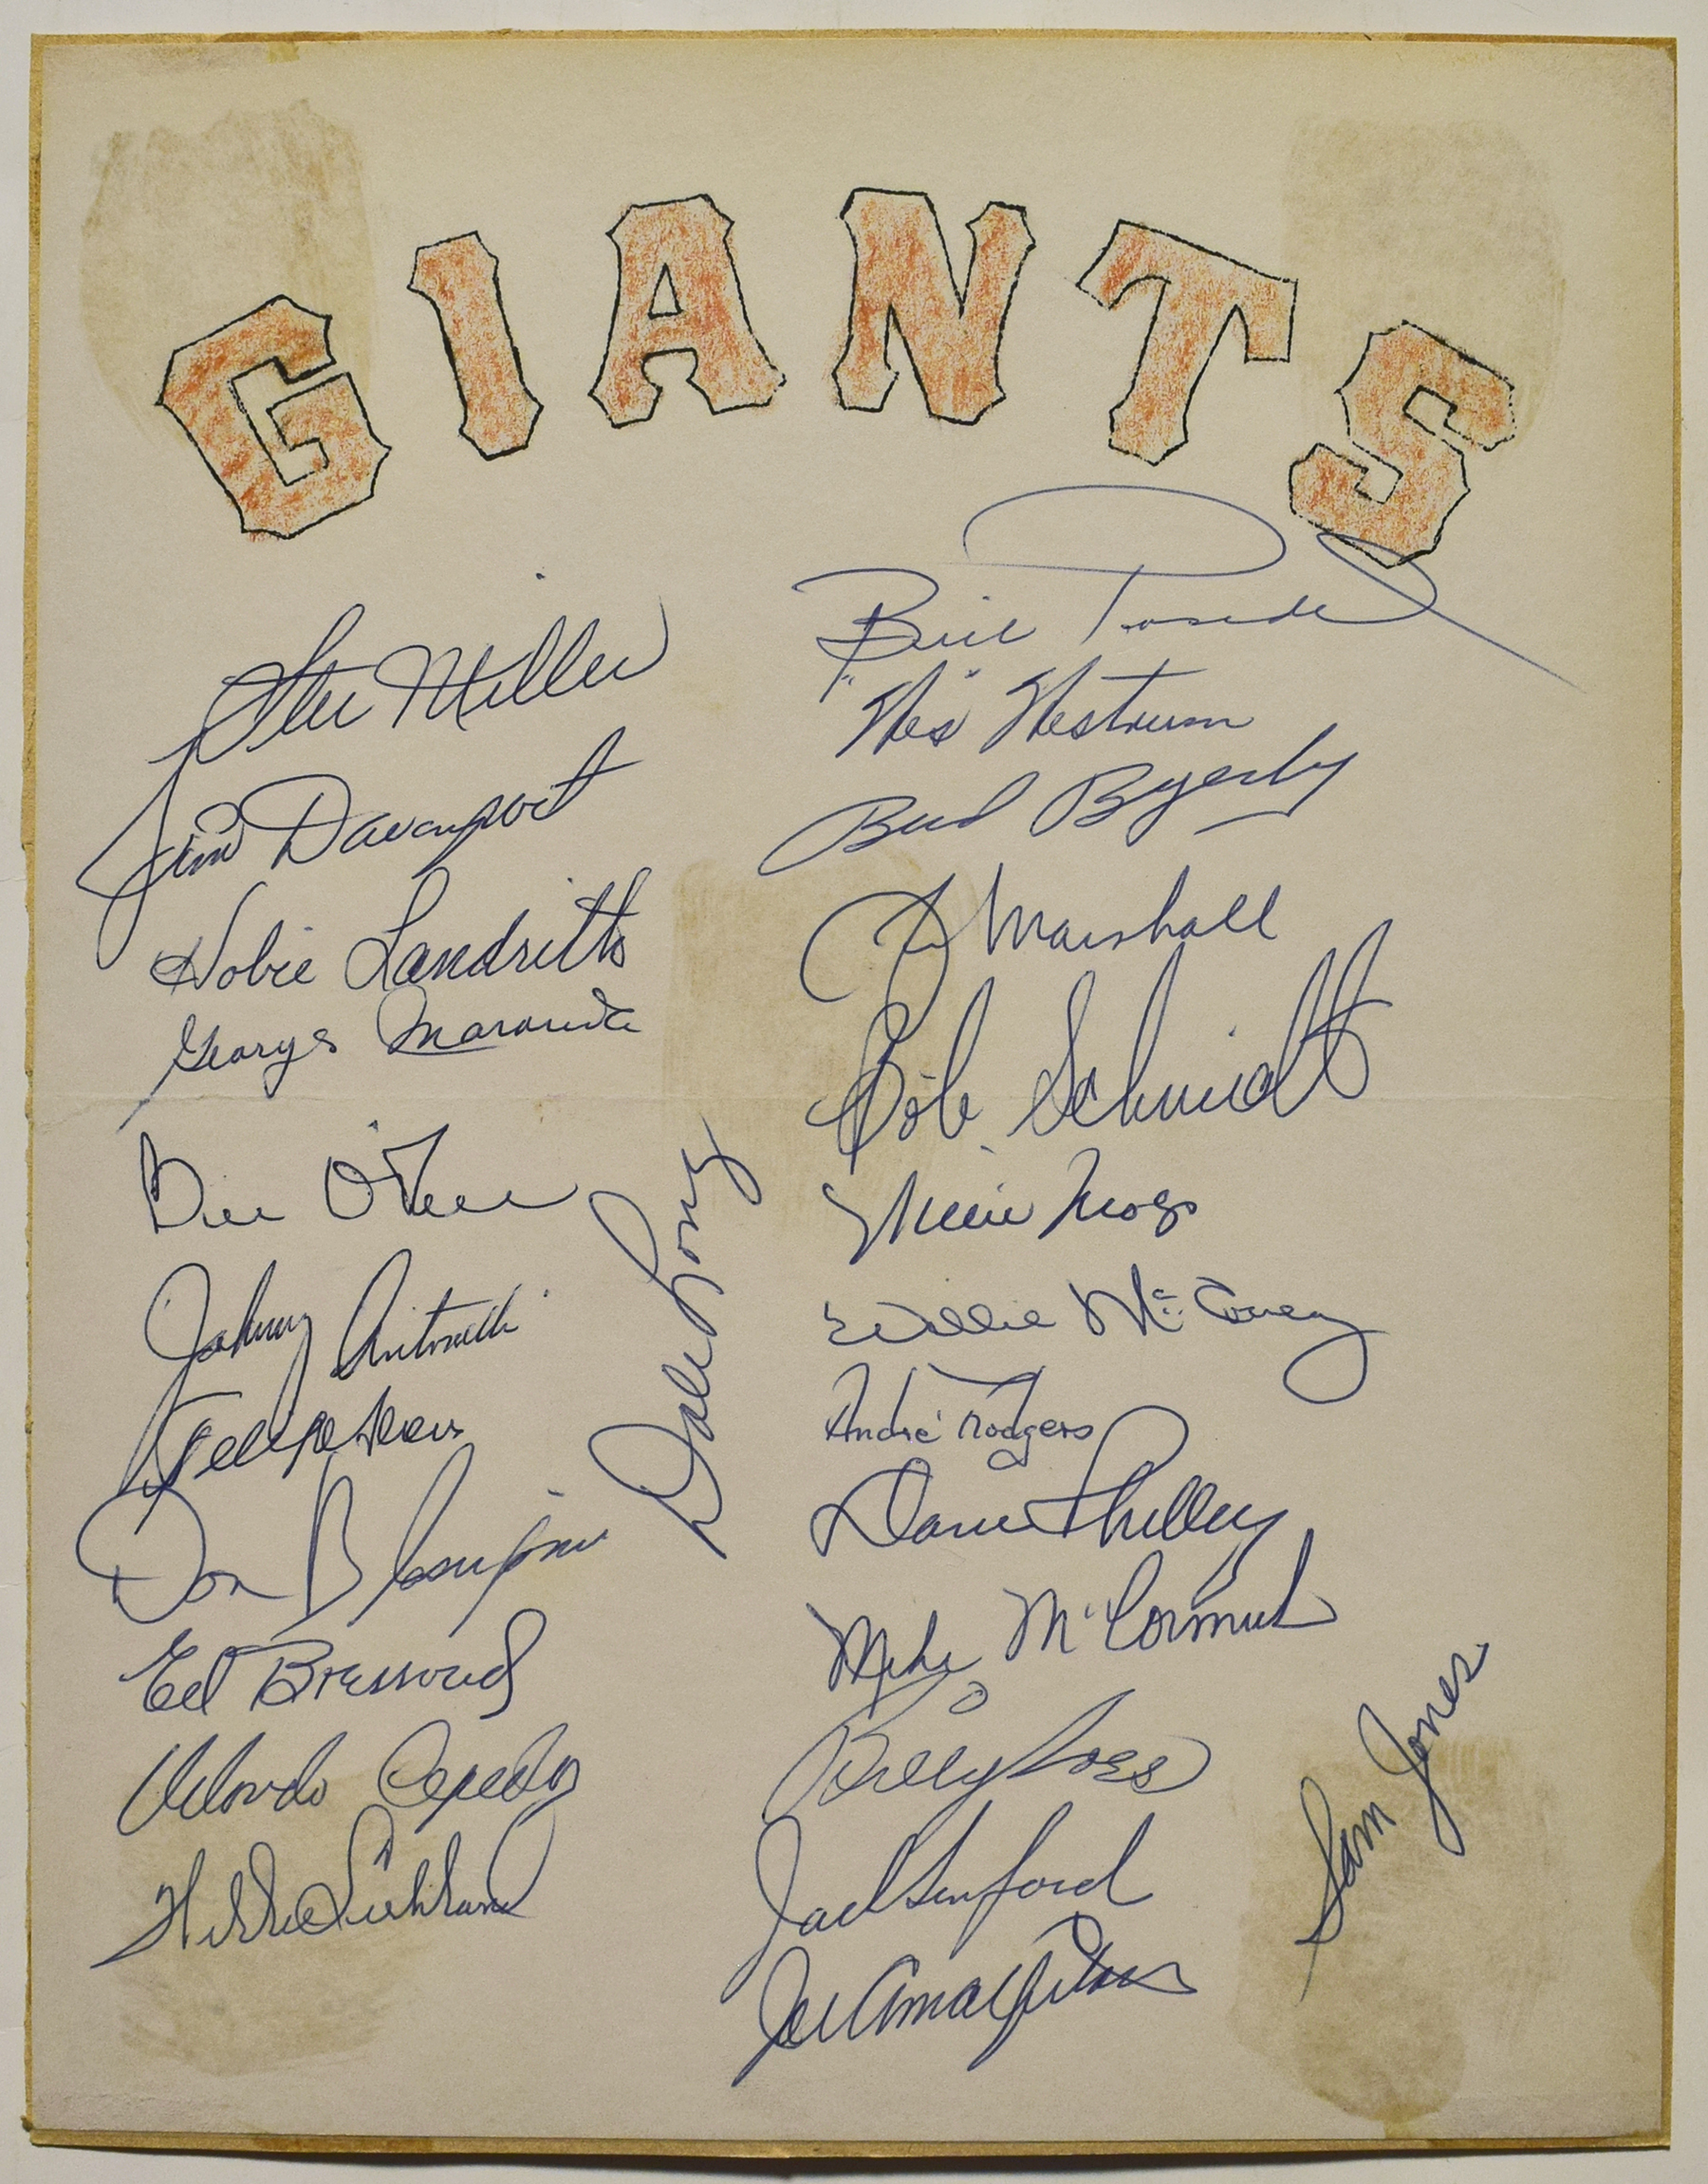 GIANTS
Stu Miller
Jim Davenport
Hobie Landrith
George Maranda
Johnny Antonelli
Felipe Alou
Don Blasingame
Ed Bressoud
Orlando Cepeda
Willie Kirkland
Dale Long
Bill Posedel
"Wes" Westrum
Bud Byerly
J Marshall
Bob Schmidt
Willie Mays
Willie McCovey
Andre Rodgers
Dave Philley
Mike McCormick
Billy Loes
Jack Sanford
Joe Amalfitano
Sam Jones